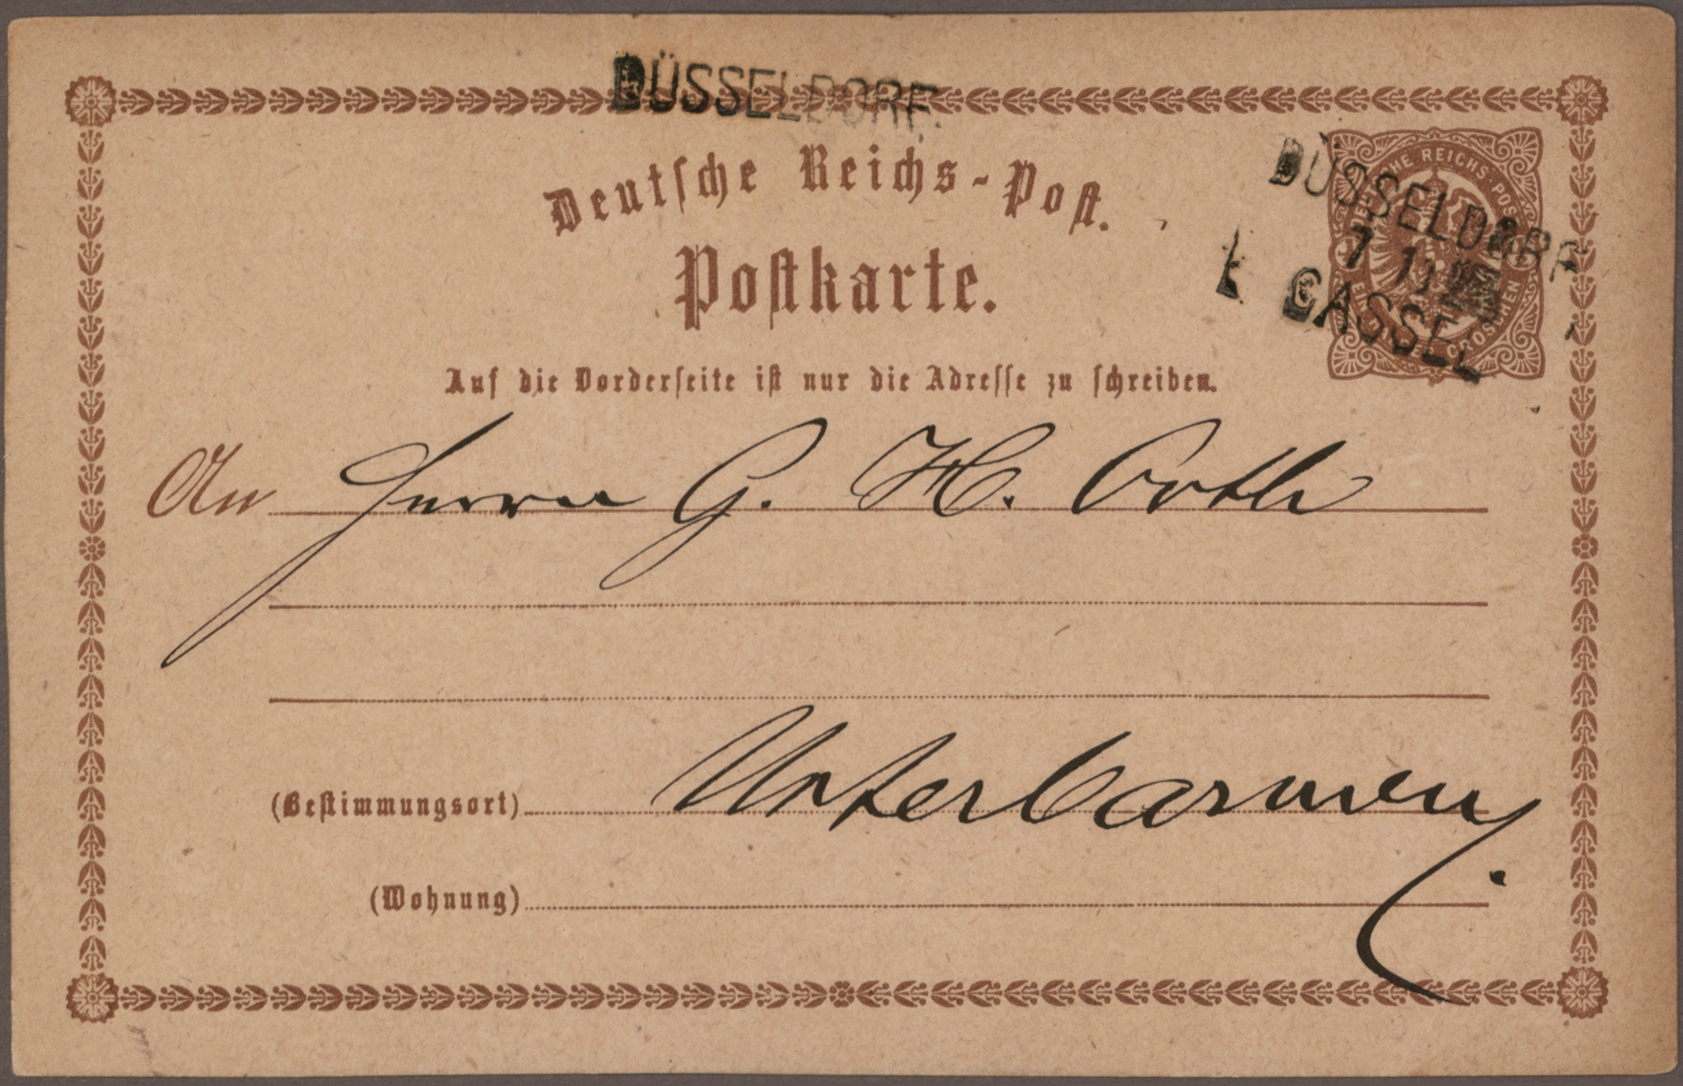 DÜSSELDORF.
Deutsche Reichs-Post.
Postkarte.
DEUTSCHE REICHS-POST
EIN GROSCHEN
DÜSSELDORF
7 11
CASSEL
Auf die Vorderseite ist nur die Adresse zu schreiben.
An Herrn G. H. Orth
(Bestimmungsort) Unterbarmen
(Wohnung)